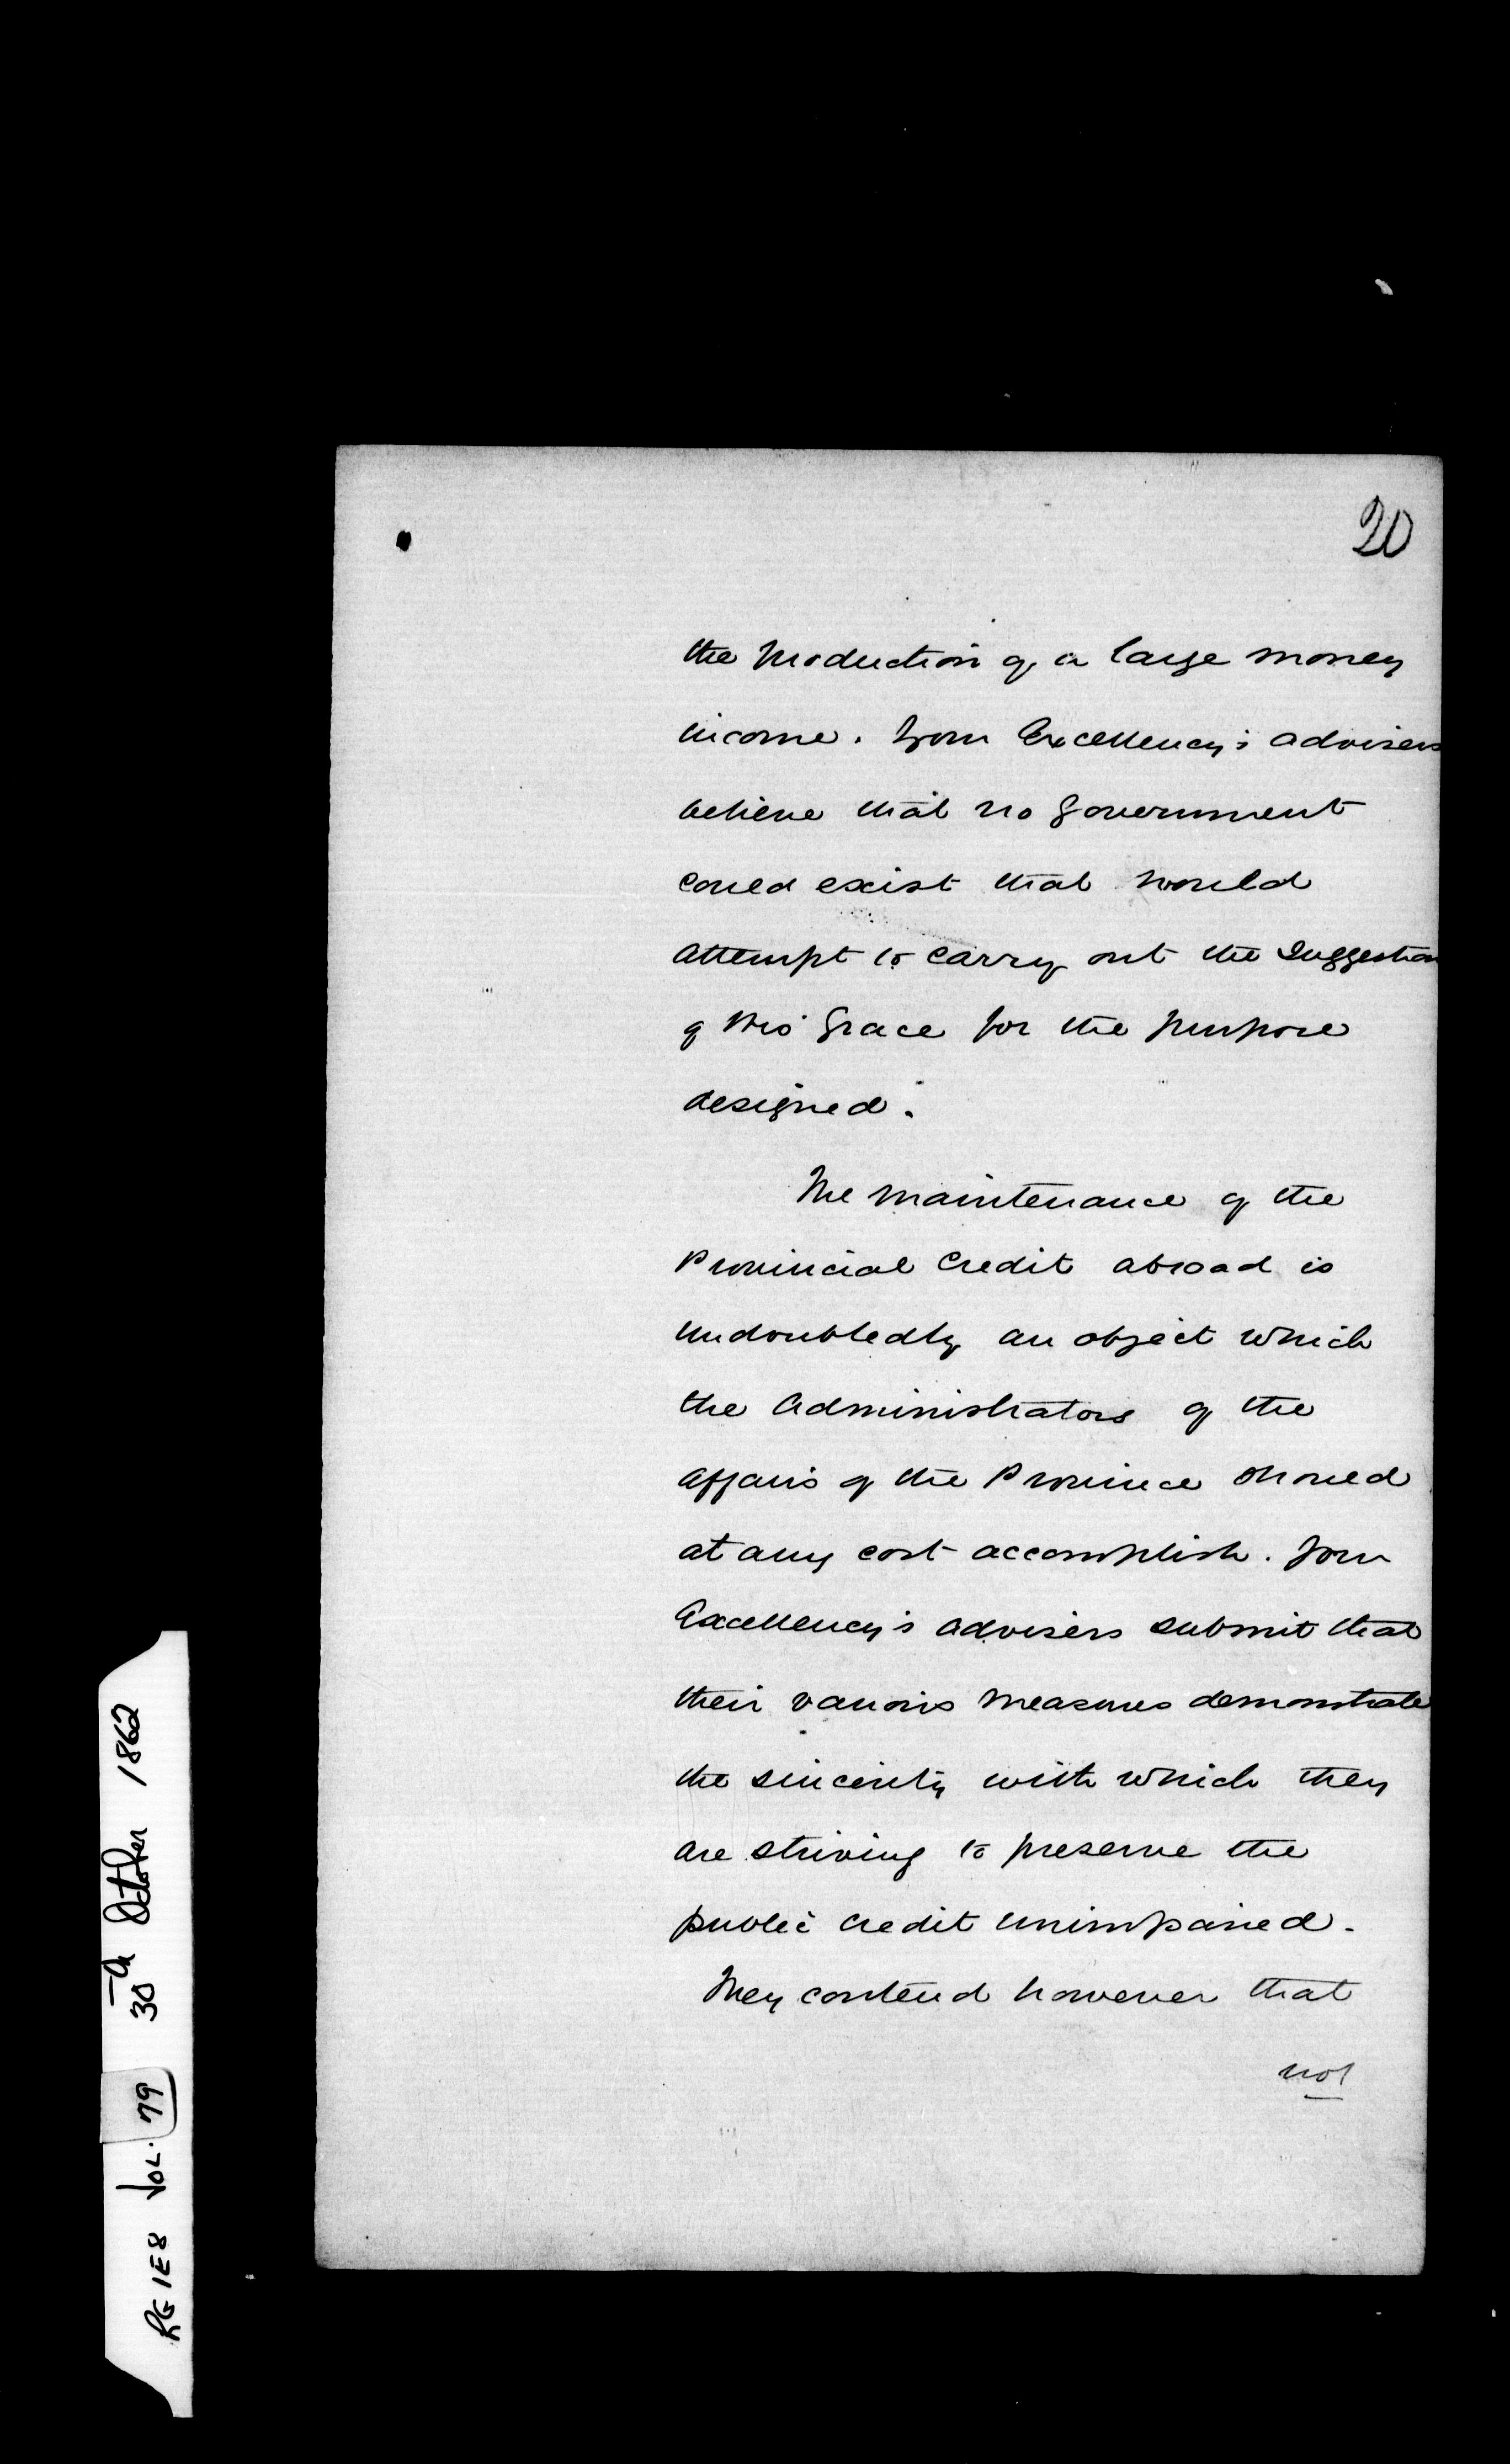 20
the production of a large money
income. Your Excellency's advisers
believe that no Government
could exist that would
attempt to carry out the suggestion
of His Grace for the purpose
designed.
The maintenance of the
Provincial Credit abroad is
undoubtedly an object which
the Administrators of the
affairs of the Province should
at any cost accomplish. Your
Excellency's advisers submit that
their various measures demonstrate
the sincerity with which they
are striving to preserve the
public credit unimpaired.
They contend however that
not
RG 1E8 VOL. 79 30th October 1862